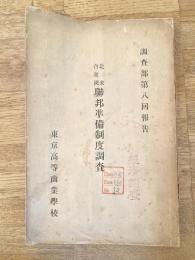 調査部第八回報告
北米
合衆國
聯邦準備制度調査
東京高等商業學校